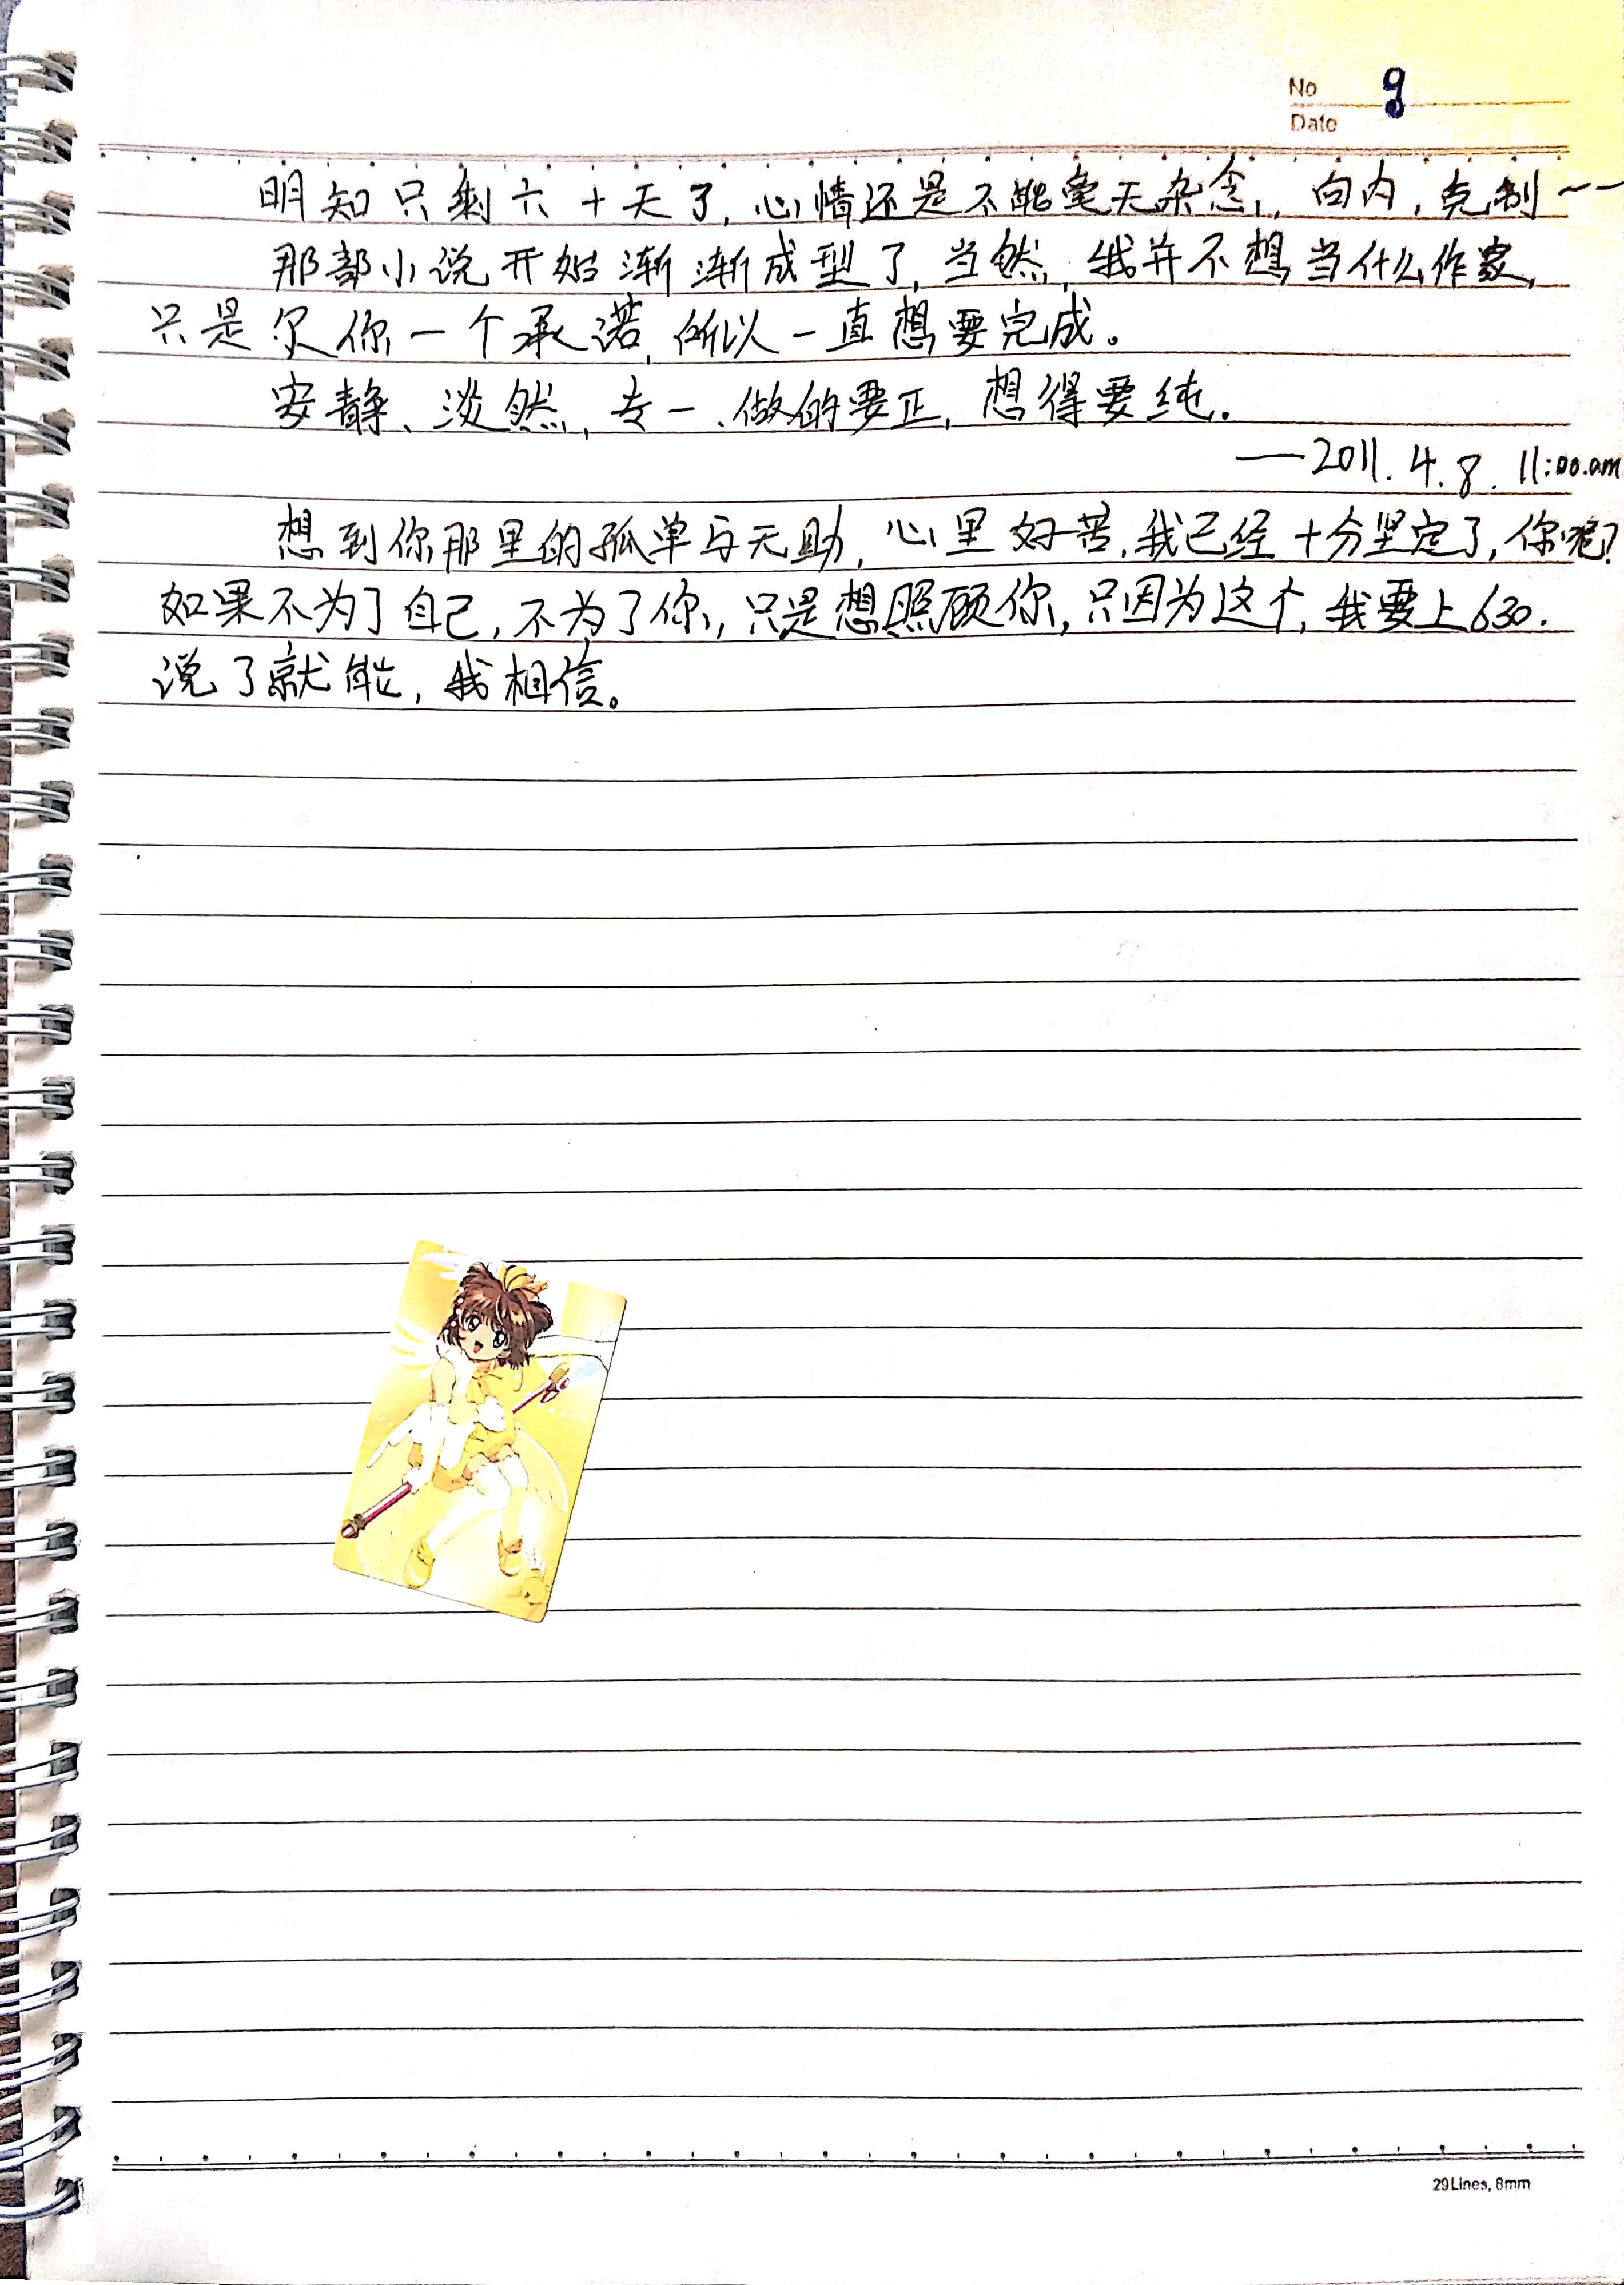 No 9
Date
明知只剩六十天了,心情还是不能毫无杂念,向内,克制~~
那部小说开始渐渐成型了,当然,我并不想当什么作家,
只是欠你一个承诺,所以一直想要完成。
安静、淡然,专一、做的要正,想得要纯.
——2011.4.8.11:00.am
想到你那里的孤单与无助,心里好苦,我已经十分坚定了,你呢?
如果不为了自己,不为了你,只是想照顾你,只因为这个,我要上630.
说了就能,我相信。
29Lines, 8mm